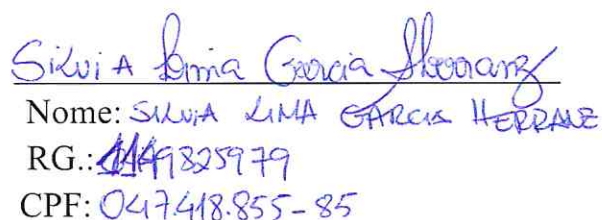 Silvia Lima Garcia Herranz
Nome: SILVIA LIMA GARCIA HERRANZ
RG.:
CPF: 047.418.855-85